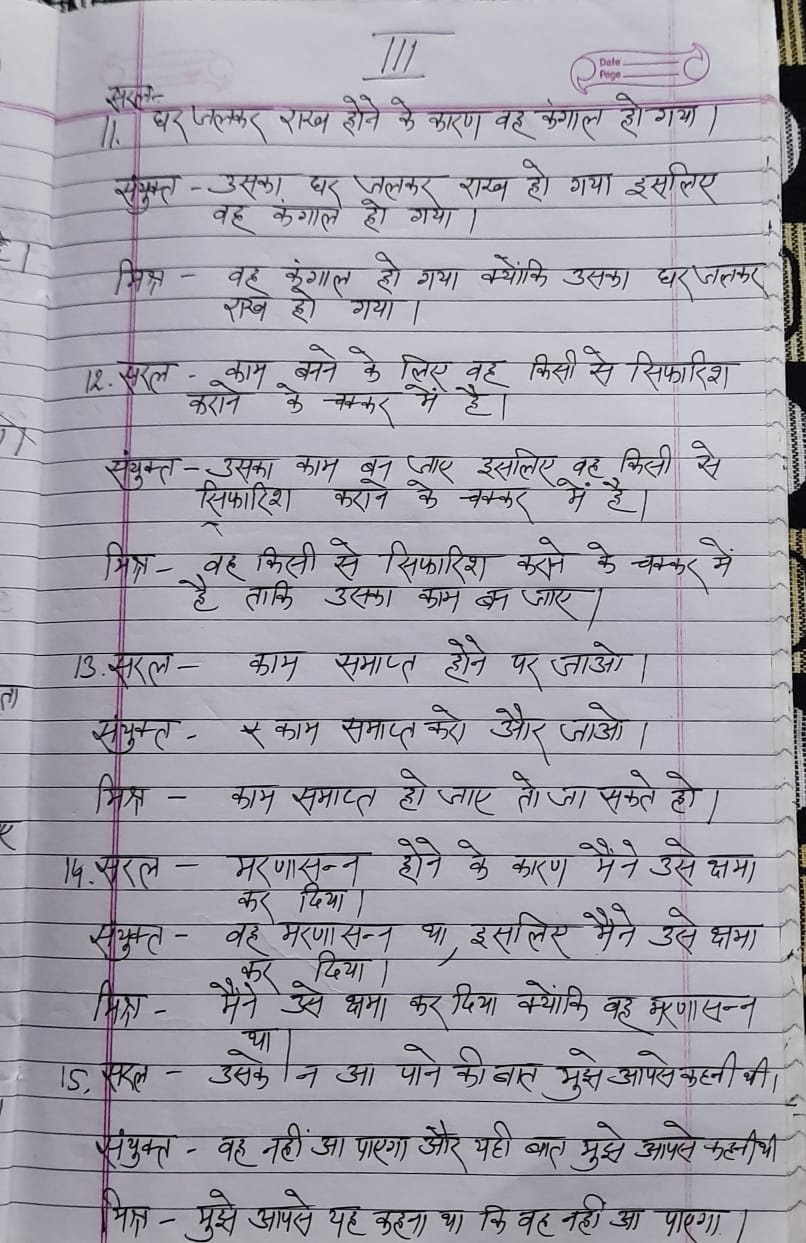 III
Date
Page
सरल:-
11. घर जलकर राख होने के कारण वह कंगाल हो गया।
संयुक्त - उसका घर जलकर राख हो गया इसलिए
वह कंगाल हो गया।
मिश्र - वह कंगाल हो गया क्योंकि उसका घर जलकर
राख हो गया।
12. सरल - काम बनने के लिए वह किसी से सिफारिश
कराने के चक्कर में है।
संयुक्त - उसका काम बन जाए इसलिए वह किसी से
सिफारिश कराने के चक्कर में है।
मिश्र - वह किसी से सिफारिश कराने के चक्कर में
है ताकि उसका काम बन जाए।
13. सरल - काम समाप्त होने पर जाओ।
संयुक्त - काम समाप्त करो और जाओ।
मिश्र - काम समाप्त हो जाए तो जा सकते हो।
14. सरल - मरणासन्न होने के कारण मैंने उसे क्षमा
कर दिया।
संयुक्त - वह मरणासन्न था, इसलिए मैंने उसे क्षमा
कर दिया।
मिश्र - मैंने उसे क्षमा कर दिया क्योंकि वह मरणासन्न
था।
15. सरल - उसके न आ पाने की बात मुझे आपसे कहनी थी।
संयुक्त - वह नहीं आ पाएगा और यही बात मुझे आपसे कहनी थी
मिश्र - मुझे आपसे यह कहना था कि वह नही आ पाएगा।